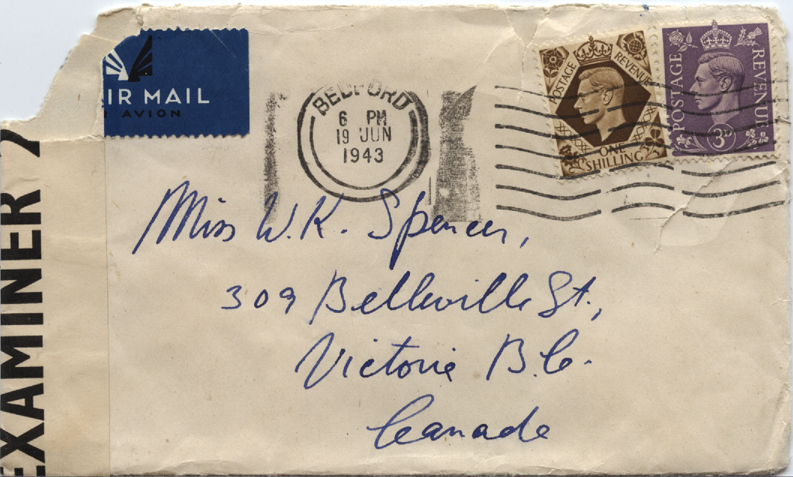 IR MAIL
AVION
BEDFORD
6 PM
19 JUN
1943
POSTAGE REVENUE
ONE
SHILLING
POSTAGE REVENUE
3D
EXAMINER
Miss W.K. Spencer,
309 Belleville St.,
Victoria B.C.
Canada